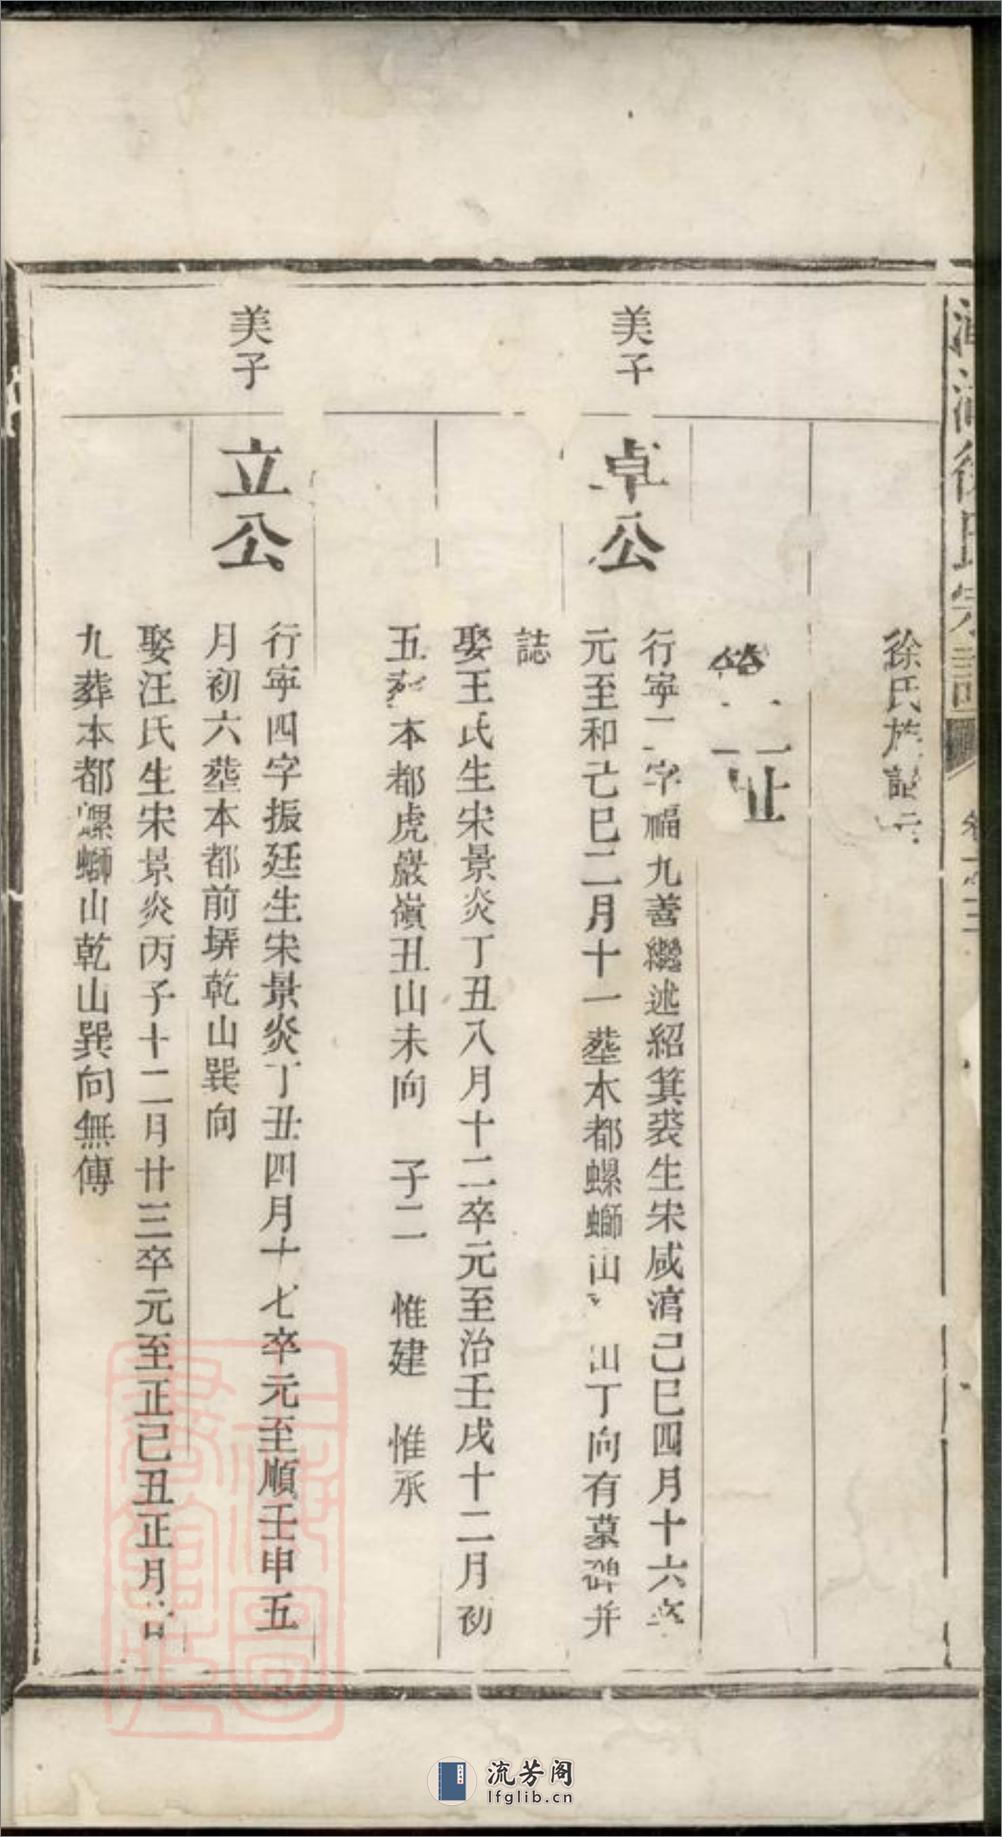 徐氏宗譜
徐氏族譜
世
美子
卓公
行寧一字福九善繼述紹箕裘生宋咸淳己巳四月十六卒
元至和己巳二月十一塟本都螺螄山山丁向有墓碑并
誌
娶王氏生宋景炎丁丑八月十二卒元至治壬戌十二月初
五葬本都虎巖嶺丑山未向 子二 惟建 惟承
美子
立公
行寧四字振廷生宋景炎丁丑四月十七卒元至順壬申五
月初六塟本都前塝乾山巽向
娶汪氏生宋景炎丙子十二月廿三卒元至正己丑正月
九葬本都螺螄山乾山巽向無傳
上海圖書館藏
流芳阁
lfglib.cn